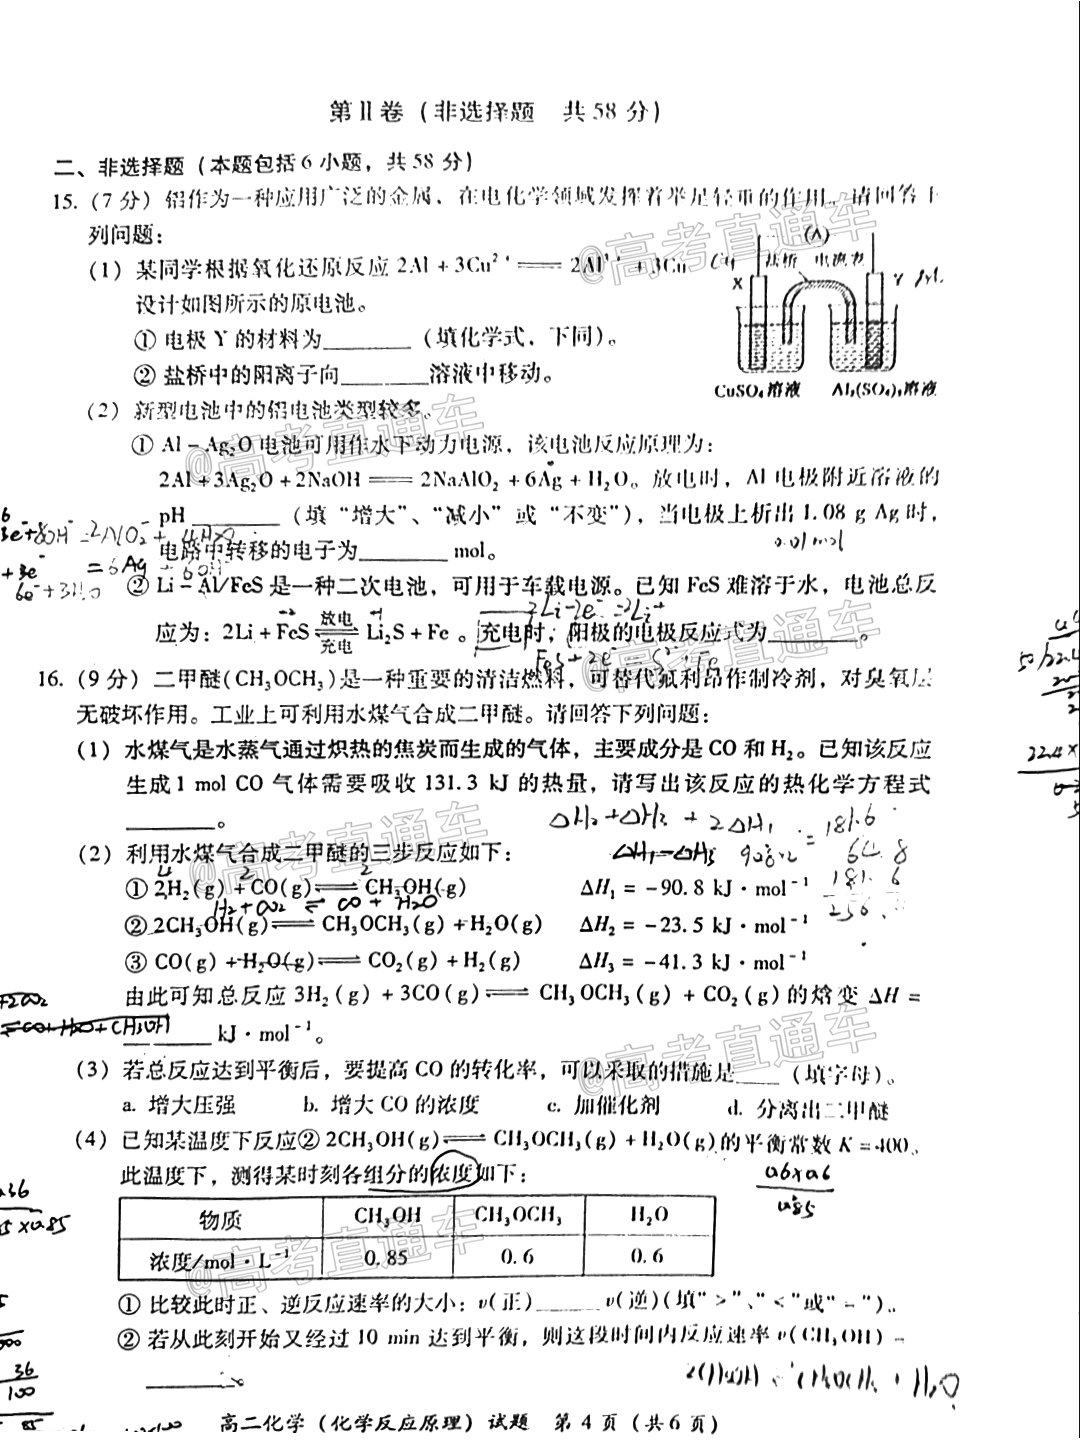 第Ⅱ卷（非选择题 共58分）
二、非选择题（本题包括6小题，共58分）
15.（7分）铝作为一种应用广泛的金属，在电化学领域发挥着举足轻重的作用。请回答下
列问题：
（1）某同学根据氧化还原反应2Al+3Cu²⁺══2Al³⁺+3Cu
设计如图所示的原电池。
① 电极Y的材料为________（填化学式，下同）。
② 盐桥中的阳离子向________溶液中移动。
(A)
Cu 盐桥 电流表
X Y
CuSO₄溶液 Al₂(SO₄)₃溶液
（2）新型电池中的铝电池类型较多。
① Al－Ag₂O电池可用作水下动力电源，该电池反应原理为：
2Al+3Ag₂O+2NaOH══2NaAlO₂+6Ag+H₂O。放电时，Al电极附近溶液的
pH________（填“增大”、“减小”或“不变”），当电极上析出1.08 g Ag时，
电路中转移的电子为________mol。
0.01mol
② Li－Al/FeS是一种二次电池，可用于车载电源。已知FeS难溶于水，电池总反
2Li-2e⁻=2Li⁺
应为：2Li+FeS⇌(放电/充电)Li₂S+Fe。充电时，阳极的电极反应式为________。
FeS+2e⁻=S²⁻+Fe
16.（9分）二甲醚(CH₃OCH₃)是一种重要的清洁燃料，可替代氟利昂作制冷剂，对臭氧层
无破坏作用。工业上可利用水煤气合成二甲醚。请回答下列问题：
（1）水煤气是水蒸气通过炽热的焦炭而生成的气体，主要成分是CO和H₂。已知该反应
生成1 mol CO气体需要吸收131.3 kJ的热量，请写出该反应的热化学方程式
________。
ΔH₂+ΔH₃+2ΔH₁
（2）利用水煤气合成二甲醚的三步反应如下：
① 2H₂(g)+CO(g)⇌CH₃OH(g) ΔH₁=－90.8 kJ·mol⁻¹
H₂+CO₂⇌CO+H₂O
② 2CH₃OH(g)⇌CH₃OCH₃(g)+H₂O(g) ΔH₂=－23.5 kJ·mol⁻¹
③ CO(g)+H₂O(g)⇌CO₂(g)+H₂(g) ΔH₃=－41.3 kJ·mol⁻¹
由此可知总反应3H₂(g)+3CO(g)⇌CH₃OCH₃(g)+CO₂(g)的焓变ΔH=
________kJ·mol⁻¹。
（3）若总反应达到平衡后，要提高CO的转化率，可以采取的措施是____（填字母）。
a. 增大压强 b. 增大CO的浓度 c. 加催化剂 d. 分离出二甲醚
（4）已知某温度下反应②2CH₃OH(g)⇌CH₃OCH₃(g)+H₂O(g)的平衡常数K=400。
此温度下，测得某时刻各组分的浓度如下：
物质 CH₃OH CH₃OCH₃ H₂O
浓度/mol·L⁻¹ 0.85 0.6 0.6
① 比较此时正、逆反应速率的大小：v(正)______v(逆)(填“>”、“<”或“=”)。
② 若从此刻开始又经过10 min达到平衡，则这段时间内反应速率v(CH₃OH)=
________。
高二化学（化学反应原理）试题 第4页（共6页）
@高考直通车
@高考直通车
@高考直通车
@高考直通车
@高考直通车
@高考直通车